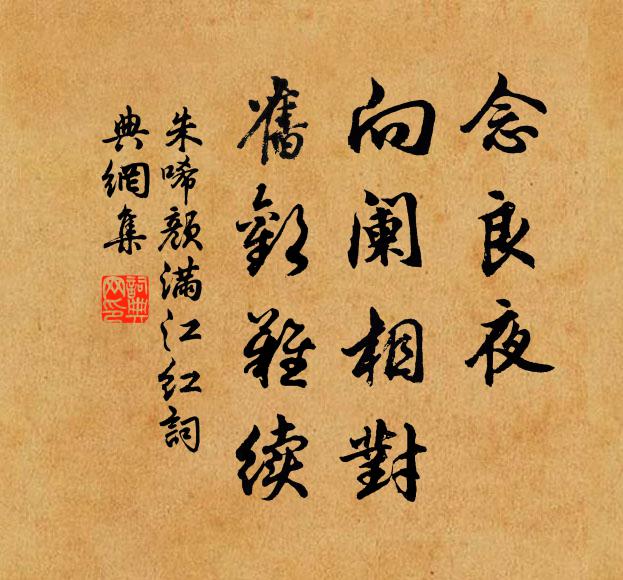 念良夜
向阑相對
舊歡難续
朱唏颜满江红詞
典網集
詞典網印